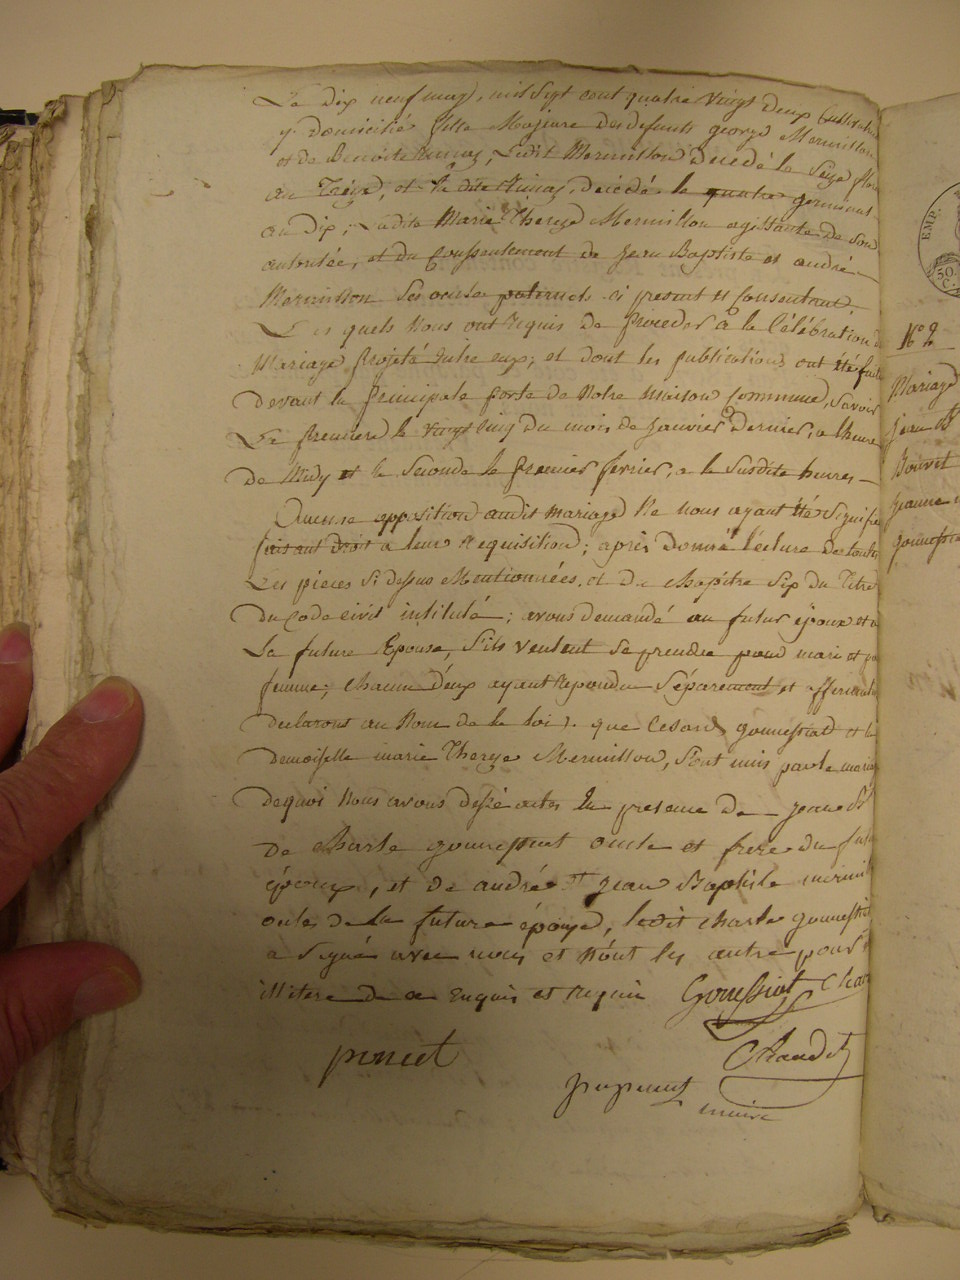 Le dix neuf may, mil sept cent quatre vingt deux Cultivatrice
y domicilié fille Majeure des defunts george Mermillon
et de Benoite , Ledit Mermillon Decedé le Seize
an Treize, et la dite , decédé le quatre germinal
an dix, Ladite Marie Thereze Mermillon agissante de Son
autoritée, et du Consentement de Jean Baptiste et andré
Mermillon Ses oncle paternels ci present et Consentant.
Les quels Nous ont requis de Proceder a la Célébration du
Mariage projeté Entre eux; et dont les publications ont été faite
Devant la principale porte de Notre maison Commune, Savoir
La premiere le vingt cinq du mois de Janvier Dernier, a lheure
De Midy et la Seconde le premier fevrier, a la Susdite heure
Aucune opposition audit mariage Ne nous ayant été Signifié
faisant Droit a leur requisition; après Donné lecture de toutes
Les pieces Si dessus Mentionnées, et du chapitre Six du Titre
Du Code civil intitulé; avons demandé au futur époux et a
La future Epouse, S'ils veulent se prendre pour mari et pour
femme; chacun d'eux ayant repondu Séparement et affermativ
declarons au Nom de la loi, que Cesard gonnessiat et la
Demoiselle marie Thereze Mermillon, Sont unis par le mariage
De quoi Nous avons dressé actes En presence de jean Bte
De Charle gonnessiat oncle et frere du futur
époux, et de andré et jean Baptiste mermill
oncles de la future épouze, ledit charle gonnessiat
a Signé avec nous et Nont les autre pour
illitere de ce Enquis et requis Gonessiat Char
poncet
Chaudet
maire
No 2
Mariage
jean Bte
Bouvet
jeanne
gonnessia
EMP.
50.
C.